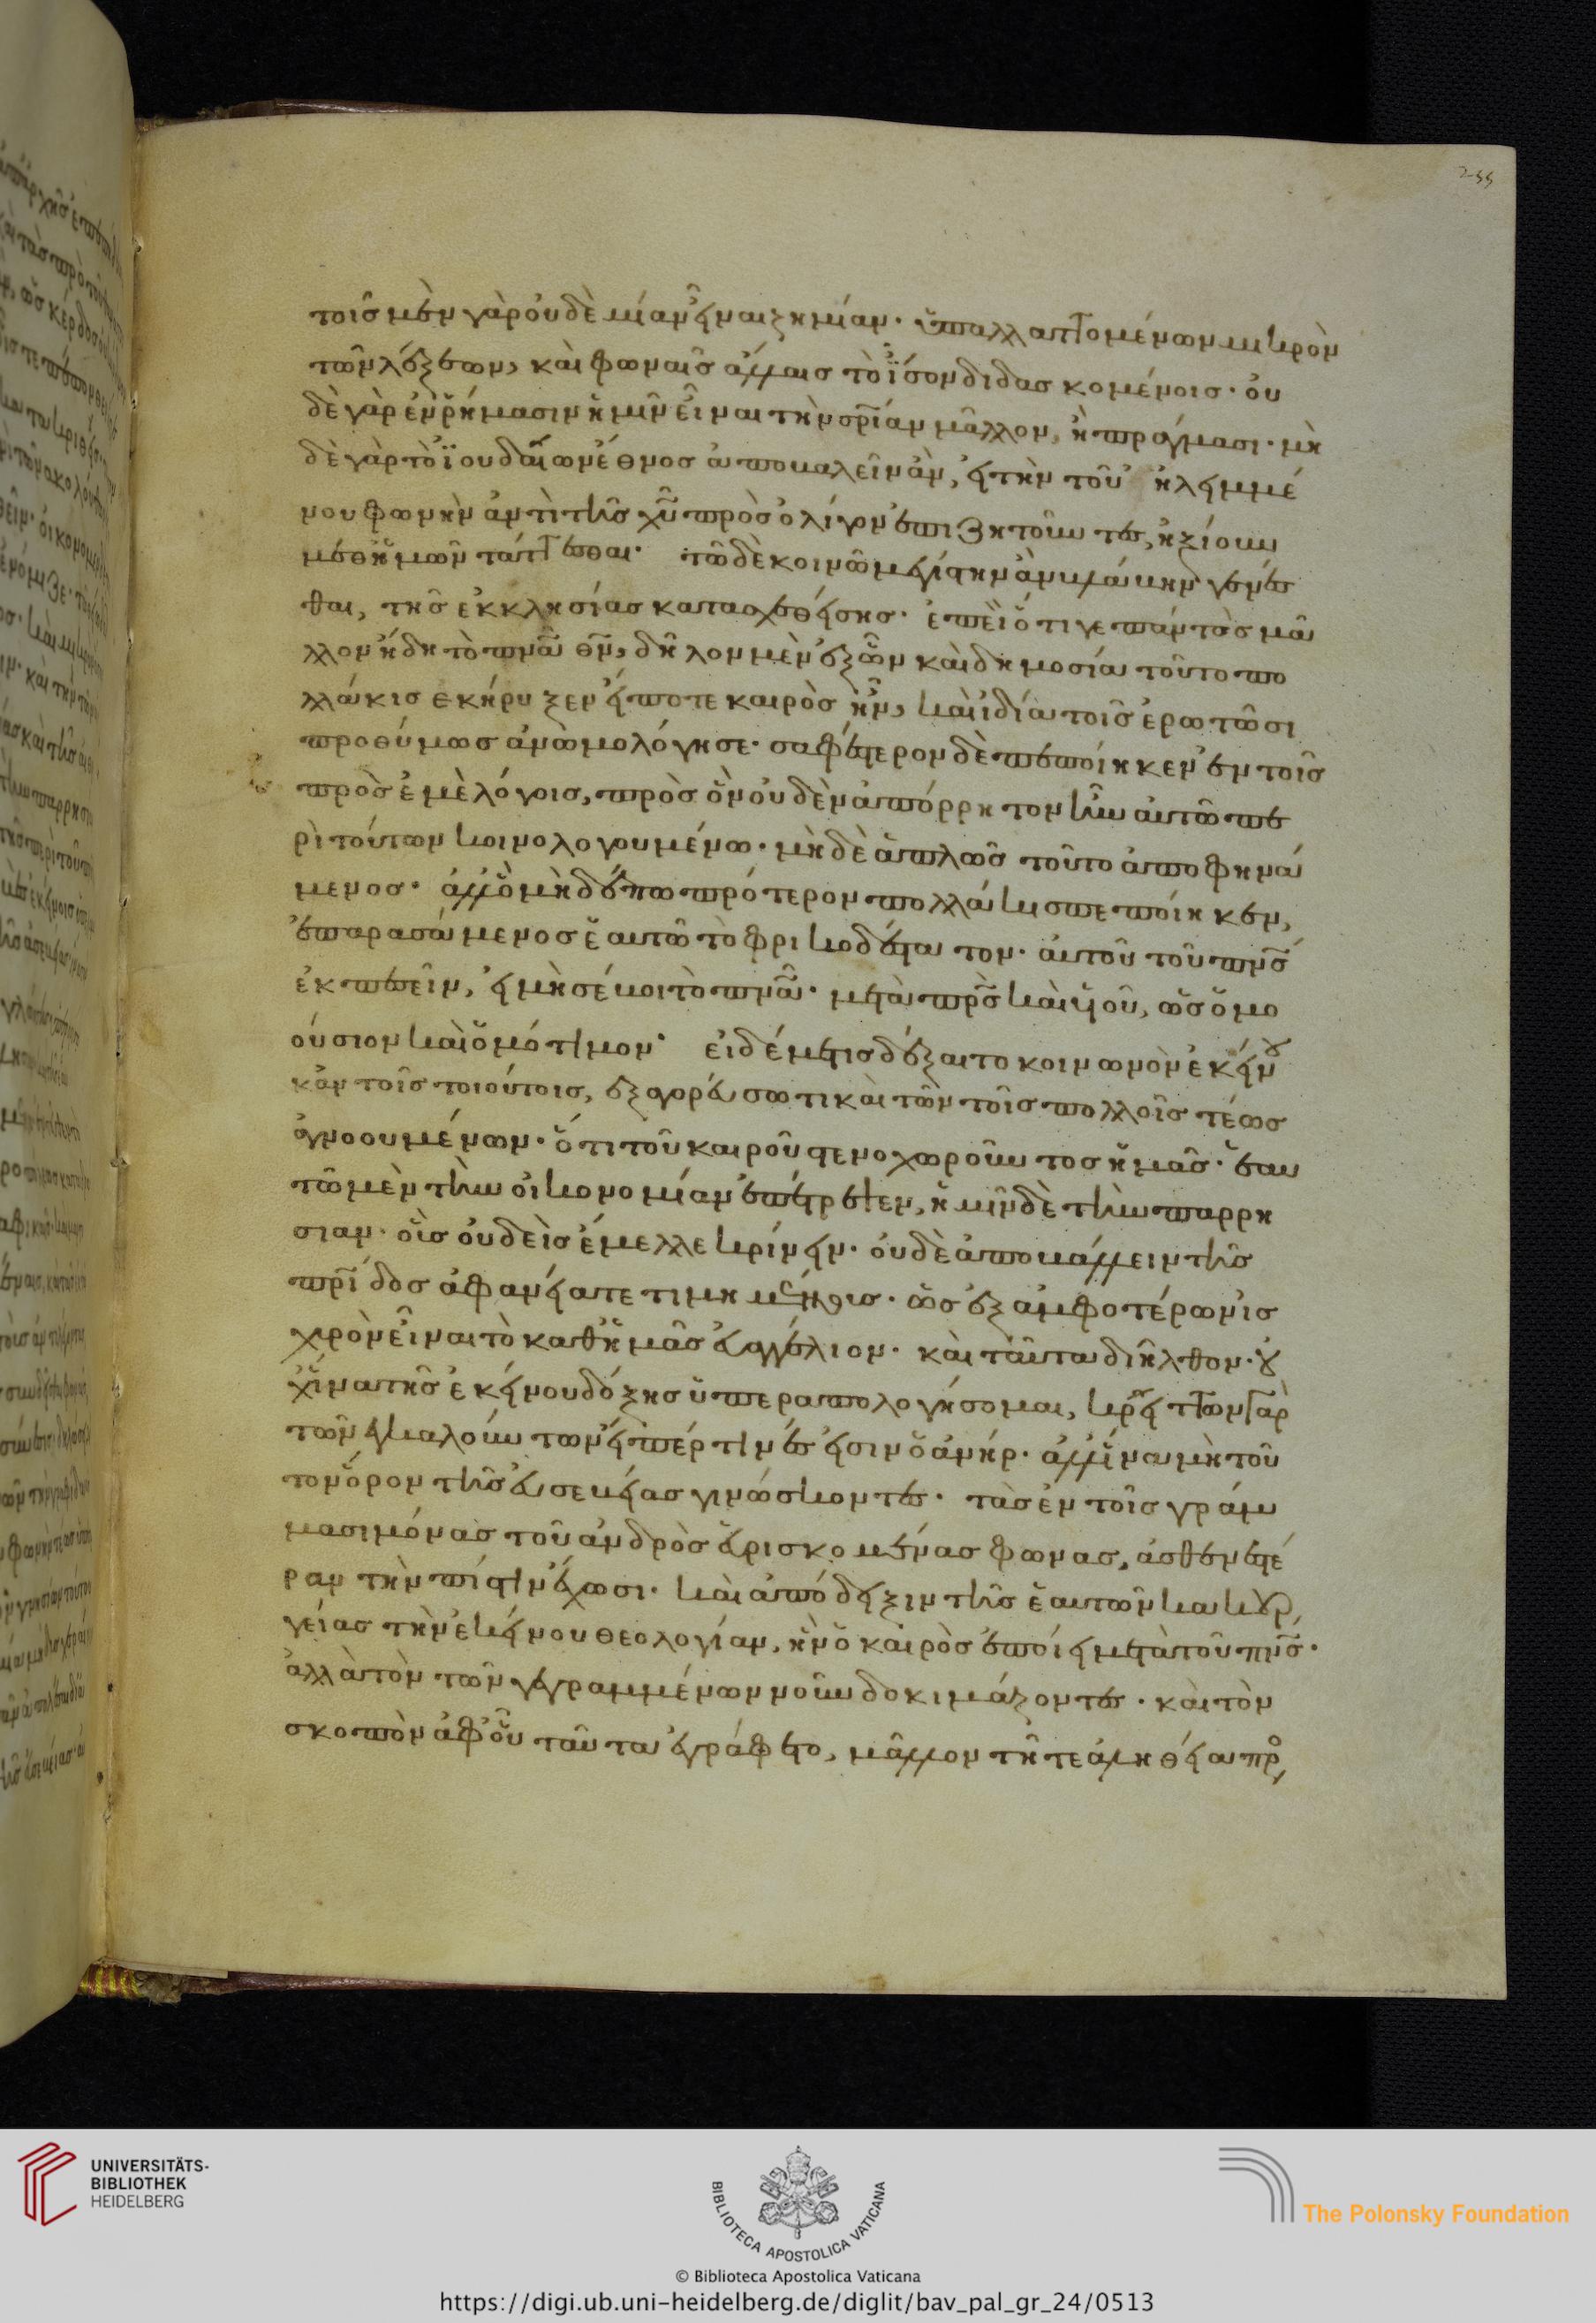 255
τοῖς μὲν γὰρ οὐδὲ μίαν εἶναι ζημίαν· ὑπαλλαττομένων μικρὸν
τῶν λέξεων, καὶ φωναῖς ἄλλαις τὸ ἴσον διδασκομένοις· οὐ
δὲ γὰρ ἐν ῥήμασιν ἡμῖν εἶναι τὴν σρίαν μᾶλλον, ἢ πράγμασι· μὴ
δὲ γὰρ τὸ ἰουδαίων ἔθνος ἀποκαλεῖν ἂν, εἰ τὴν τοῦ ἠλειμμέ
νου φωνὴν ἀντὶ τῆς χῦ πρὸς ὀλίγον ἐπιζητοῦντες, ἠξίουν
μεθ ἡμῶν τάττεσθαι· τῷ δὲ κοινῷ μεγίστην ἂν βλάβην γενέσ
θαι, τῆς ἐκκλησίας κατασχεθείσης· ἐπεὶ ὅτι γε πάντὸς μᾶ
λλον ἤδη τὸ πνᾶ θν, δῆλον μὲν ἐξ ὧν καὶ δημοσίᾳ τοῦτο πο
λλάκις ἐκήρυξεν εἴποτε καιρὸς ἦν, καὶ ἰδίᾳ τοῖς ἐρωτῶσι
προθύμως ἀνωμολόγησε· σαφέστερον δὲ πεποίηκεν ἐν τοῖς
πρὸς ἐμὲ λόγοις, πρὸς ὃν οὐδὲν ἀπόρρητον ἦν αὐτῷ πε
ρὶ τούτων κοινολογουμένῳ· μὴ δὲ ἁπλῶς τοῦτο ἀποφηνά
μενος· ἀλλ ὃ μὴ δέπω πρότερον πολλάκις πεποίηκεν,
ἐπαρασάμενος ἑαυτῷ τὸ φρικωδέστατον· αὐτοῦ τοῦ πνς
ἐκπεσεῖν, εἰ μὴ σέβοι τὸ πνᾶ· μετὰ πρς καὶ υἱοῦ, ὡς ὁμο
ούσιον καὶ ὁμότιμον· εἰ δέ με τις δέξαιτο κοινωνὸν ἐκείνου
κἀν τοῖς τοιούτοις, ἐξαγορεύσω τι καὶ τῶν τοῖς πολλοῖς τέως
ἀγνοουμένων· ὅτι τοῦ καιροῦ στενοχωροῦντος ἡμᾶς· ἑαυ
τῷ μὲν τὴν οἰκονομίαν ἐπέτρεψεν, ἡμῖν δὲ τὴν παρρη
σιαν· οἷς οὐδεὶς ἔμελλε κρίνειν· οὐδὲ ἀποβάλλειν τῆς
πρίδος ἀφανείᾳ τετιμημένοις· ὡς ἐξ ἀμφοτέρων ἰσ
χυρὸν εἶναι τὸ καθ ἡμᾶς εὐαγγέλιον· καὶ ταῦτα διῆλθον· οὐ
χ ἵνα τῆς ἐκείνου δόξης ὑπεραπολογήσομαι, κρείττων γὰρ
τῶν ἐγκαλούντων εἴπέρ τινές εἰσιν ὁ ἀνήρ· ἀλλ ἵνα μὴ τοῦ
τον ὅρον τῆς εὐσεβείας γινώσκοντες· τὰς ἐν τοῖς γράμ
μασι μόνας τοῦ ἀνδρὸς εὑρισκομένας φωνας, ἀσθενεστέ
ραν τὴν πίστιν ἔχωσι· καὶ ἀπόδειξιν τῆς ἑαυτῶν κακουρ
γείας τὴν ἐκείνου θεολογίαν, ἣν ὁ καιρὸς ἐποίει μετὰ τοῦ πνς·
ἀλλὰ τὸν τῶν γεγραμμένων νοῦν δοκιμάζοντες· καὶ τὸν
σκοπὸν ἀφ οὗ ταῦτα ἐγράφετο, μᾶλλον τῆ τε ἀληθείᾳ πρ
UNIVERSITÄTS-
BIBLIOTHEK
HEIDELBERG
BIBLIOTECA APOSTOLICA VATICANA
The Polonsky Foundation
© Biblioteca Apostolica Vaticana
https://digi.ub.uni-heidelberg.de/diglit/bav_pal_gr_24/0513